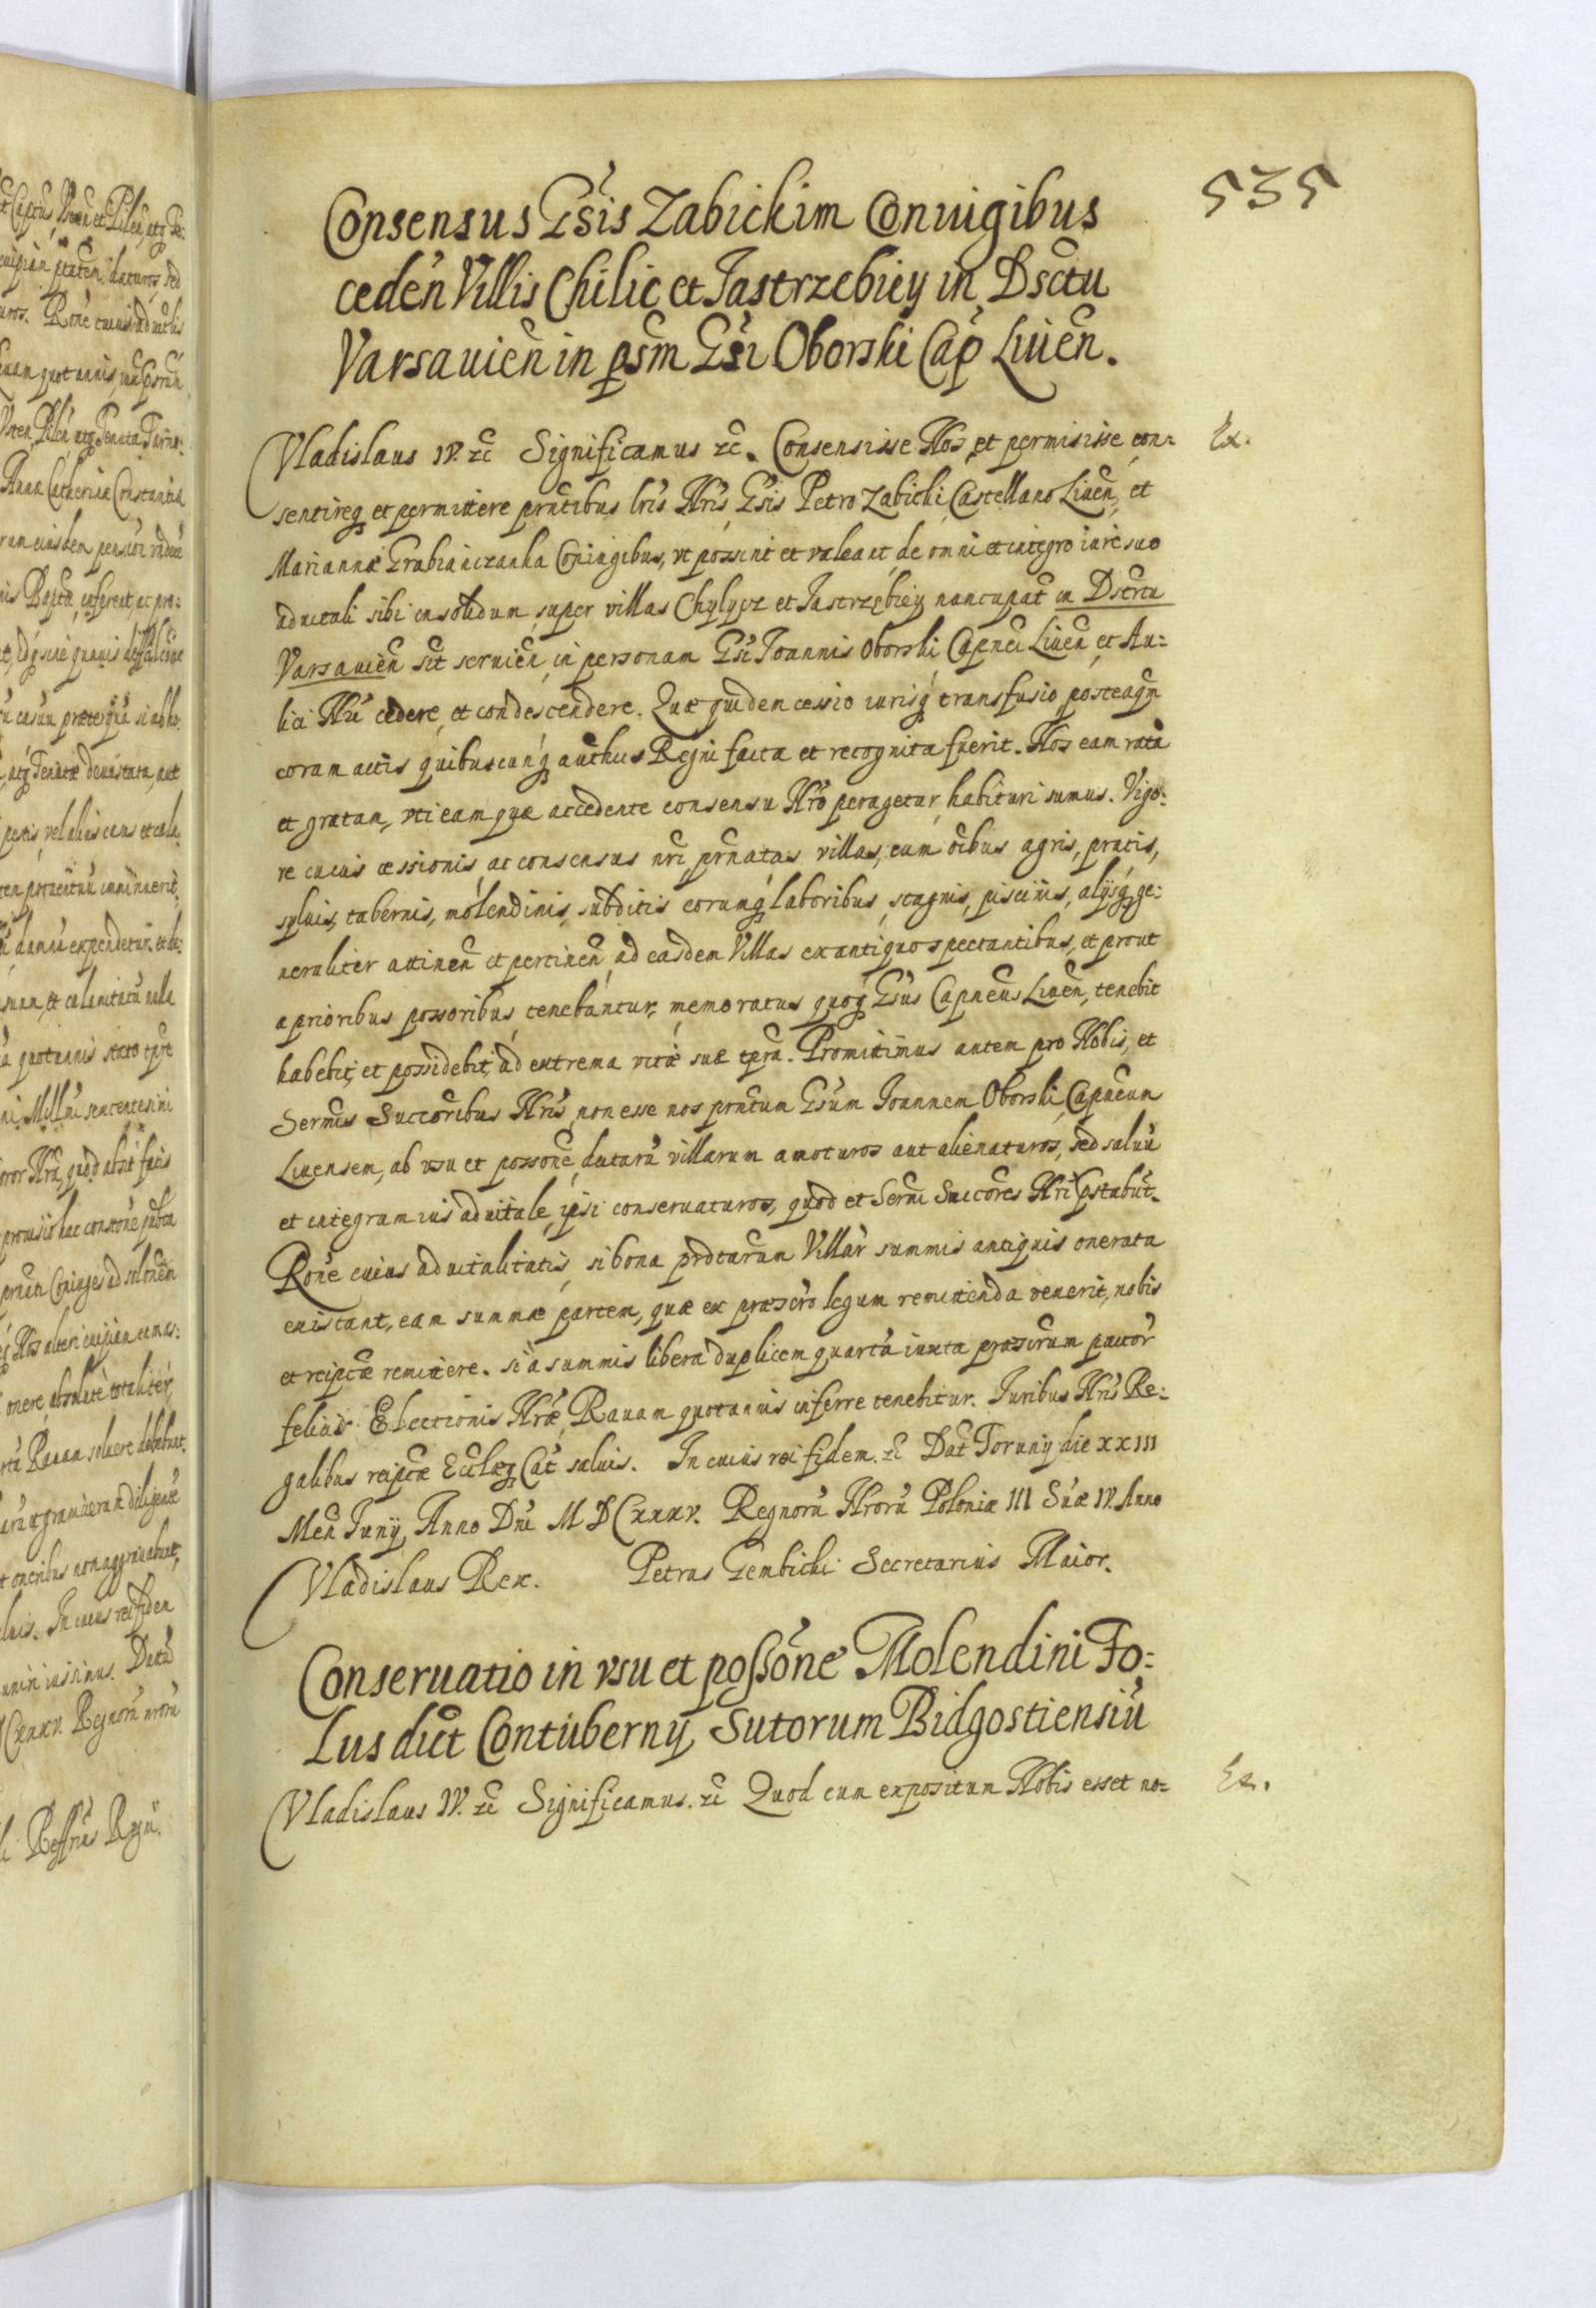 535
Consensus Gsis Zabickim Coniugibus
ceden Villis Chilic et Jastrzebiey in Dsctu
Varsauien in psm Gsi Oborski Cap Liuen.
Vladislaus IV. zc Significamus zc. Consensisse Nos, et permisisse, con=
Ex.
sentireq et permittere prntibus lris Nris Gsis Petro Zabicki Castellano Liuen, et
Mariannæ Grabianczanka Coniugibus, vt possint et valeant, de omni et integro iure suo
aduitali sibi in solidum super villas Chylycz et Jastrzębiey nuncupat in Dsctrtu
Varsauien sit seruien, in personam Gsi Joannis Oborski Capnei Liuen et Au=
lici Nri cedere, et condescendere. Quæ quidem cessio iurisq transfusio posteaqm
coram actis quibuscunq authcis Regni facta et recognita fuerit. Nos eam rata
et gratam, vti eam quæ accedente consensu Nro peragetur, habituri sumus. Vigo=
re cuius cessionis, ac consensus nri, prnatas villas, cum oibus agris, pratis,
syluis, tabernis, molendinis, subditis eorumq laboribus, stagnis, piscinis, alijsq ge=
neraliter attinen et pertinen, ad easdem Villas ex antiquo spectantibus, et prout
a prioribus possoribus tenebantur, memoratus quoq Gsus Capneus Liuen, tenebit
habebit, et possidebit, ad extrema vitæ suæ tpra. Promittimus autem pro Nobis, et
Sermis Succoribus Nris, non esse nos prntum Gsum Joannem Oborski Capneum
Liuensem, ab vsu et possone dictaru villarum amoturos aut alienaturos, sed saluu
et integrum ius aduitale ipsi conseruaturos, quod et Sermi Succores Nri pstabut.
Rone cuius aduitalitatis, si bona prdtarum Villar summis antiquis onerata
existant, eam summæ partem, quæ ex præscro legum remittenda venerit, nobis
et reipcæ remittere. si a summis libera duplicem quarta iuxta præscrum pactor
felicis Electionis Nræ, Rauam quotannis inferre tenebitur. Juribus Nris Re=
galibus reipcæ Ecclæq Cat saluis. In cuius rei fidem. zc Dat Torunij die XXIII
Men Junij, Anno Dni MDCxxxv. Regnoru Nroru Poloniæ III Suæ IV. Anno
Vladislaus Rex. Petrus Gembicki Secretarius Maior.
Conseruatio in vsu et possone Molendini Fo=
lus dict Contubernij Sutorum Bidgostiensiu
Vladislaus IV. zc Significamus. zc Quod cum expositum Nobis esset no=
Ex.